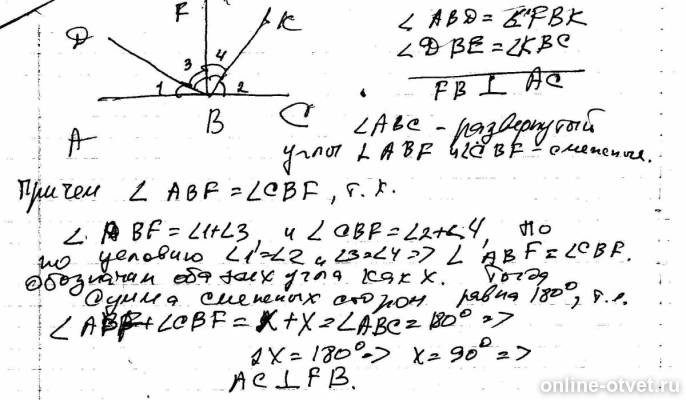 F
D
K
3 4
1 2
A B C
∠ABD = ∠FBK
∠DBE = ∠KBC
FB ⊥ AC
∠ABC - развернутый
углы ∠ABF и ∠CBF - смежные.
Причем ∠ABF = ∠CBF, т.к.
∠ABF = ∠1+∠3, и ∠CBF = ∠2+∠4, но
по условию ∠1=∠2 и ∠3=∠4 => ∠ABF = ∠CBF.
Обозначим оба этих угла как x. Тогда
Сумма смежных сторон равна 180°, т.е.
∠ABF + ∠CBF = X + X = ∠ABC = 180° =>
2X = 180° => X = 90° =>
AC ⊥ FB.
online-otvet.ru